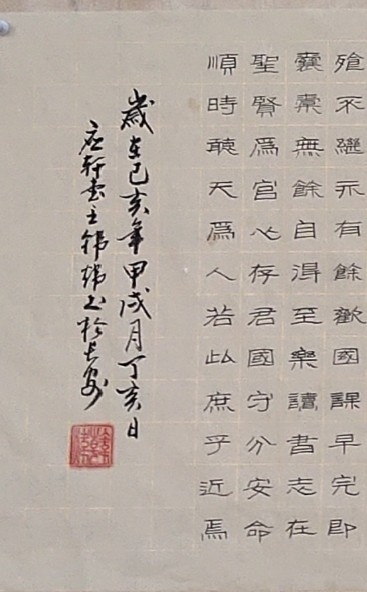 飱不繼亦有餘歡國課早完即
囊橐無餘自得至樂讀書志在
聖賢爲官心存君國守分安命
順時聽天爲人若此庶乎近焉
歲在己亥年甲戌月丁亥日
軒堂主書於長安